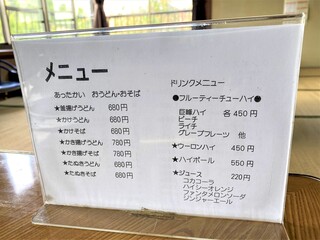 メニュー
あったかい おうどん・おそば
★釜揚げうどん 680円
★かけうどん 680円
★かけそば 680円
★かき揚げうどん 780円
★かき揚げそば 780円
★たぬきうどん 680円
★たぬきそば 680円
ドリンクメニュー
●フルーティーチューハイ●
巨峰ハイ 各450円
ピーチ
ライチ
グレープフルーツ 他
★ウーロンハイ 450円
★ハイボール 550円
★ジュース 220円
コカコーラ
ハイシーオレンジ
ファンタメロンソーダ
ジンジャーエール